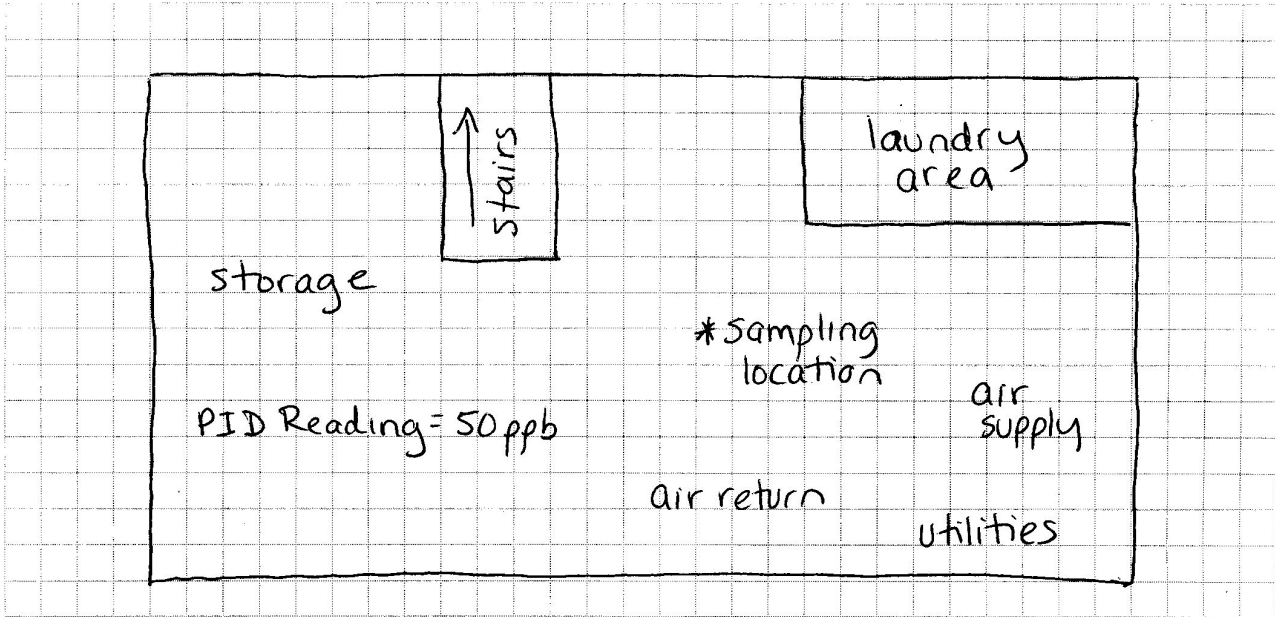 Stairs
laundry
area
storage
*sampling
location
air
supply
PID Reading = 50 ppb
air return
utilities